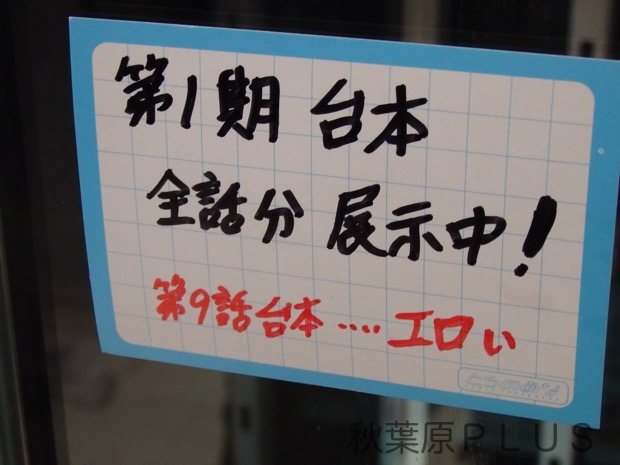 第1期 台本
全話分 展示中!
第9話台本‥‥エロい
とらのあな
秋葉原PLUS